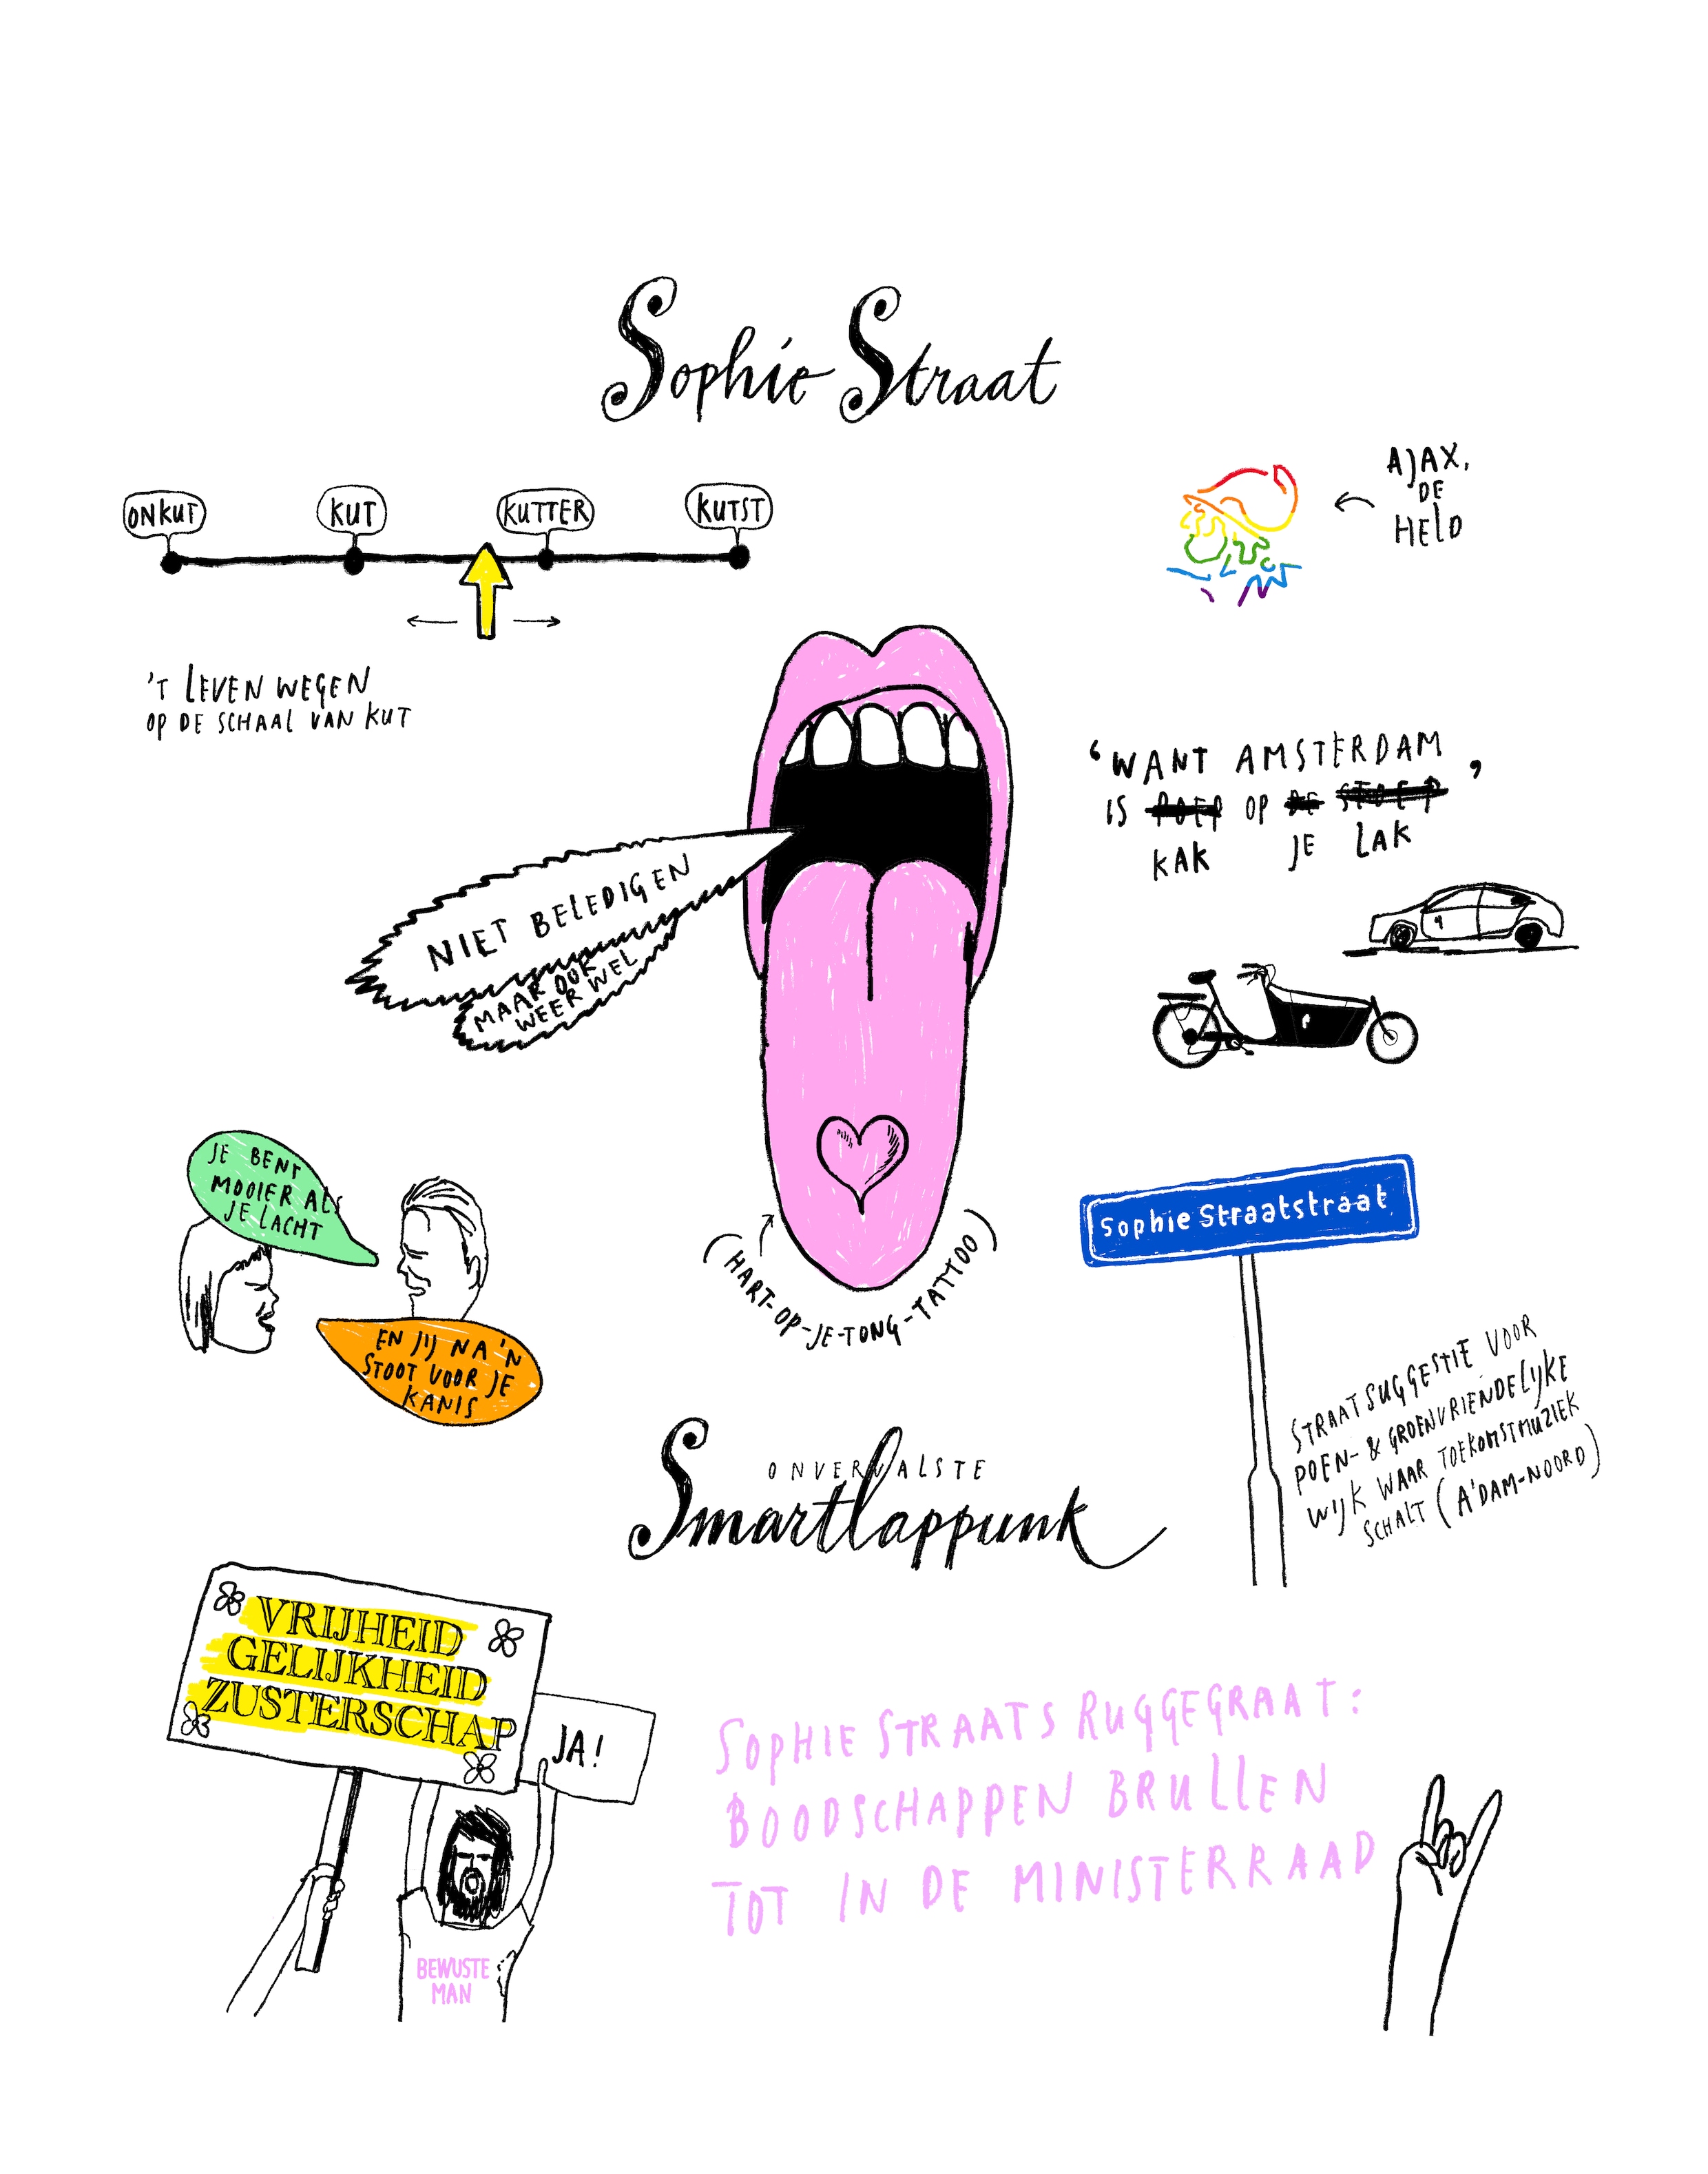 Sophie Straat
ONKUT
KUT
KUTTER
KUTST
'T LEVEN WEGEN
OP DE SCHAAL VAN KUT
AJAX,
DE
HELD
'WANT AMSTERDAM
IS POEP OP DE STOEP'
KAK JE LAK
NIET BELEDIGEN
MAAR OOK
WEER WEL
JE BENT
MOOIER ALS
JE LACHT
EN JIJ NA 'N
STOOT VOOR JE
KANIS
(HART-OP-JE-TONG-TATTOO)
Sophie Straatstraat
STRAATSUGGESTIE VOOR
POEN- & GROENVRIENDELIJKE
WIJK WAAR TOEKOMSTMUZIEK
SCHALT (A'DAM-NOORD)
ONVERVALSTE
Smartlappunk
VRIJHEID
GELIJKHEID
ZUSTERSCHAP
JA!
BEWUSTE
MAN
SOPHIE STRAATS RUGGEGRAAT:
BOODSCHAPPEN BRULLEN
TOT IN DE MINISTERRAAD